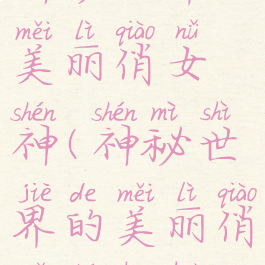 měi lì qiào nǚ
美丽俏女
shén shén mì shì
神(神秘世
jiè de měi lì qiào
界的美丽俏